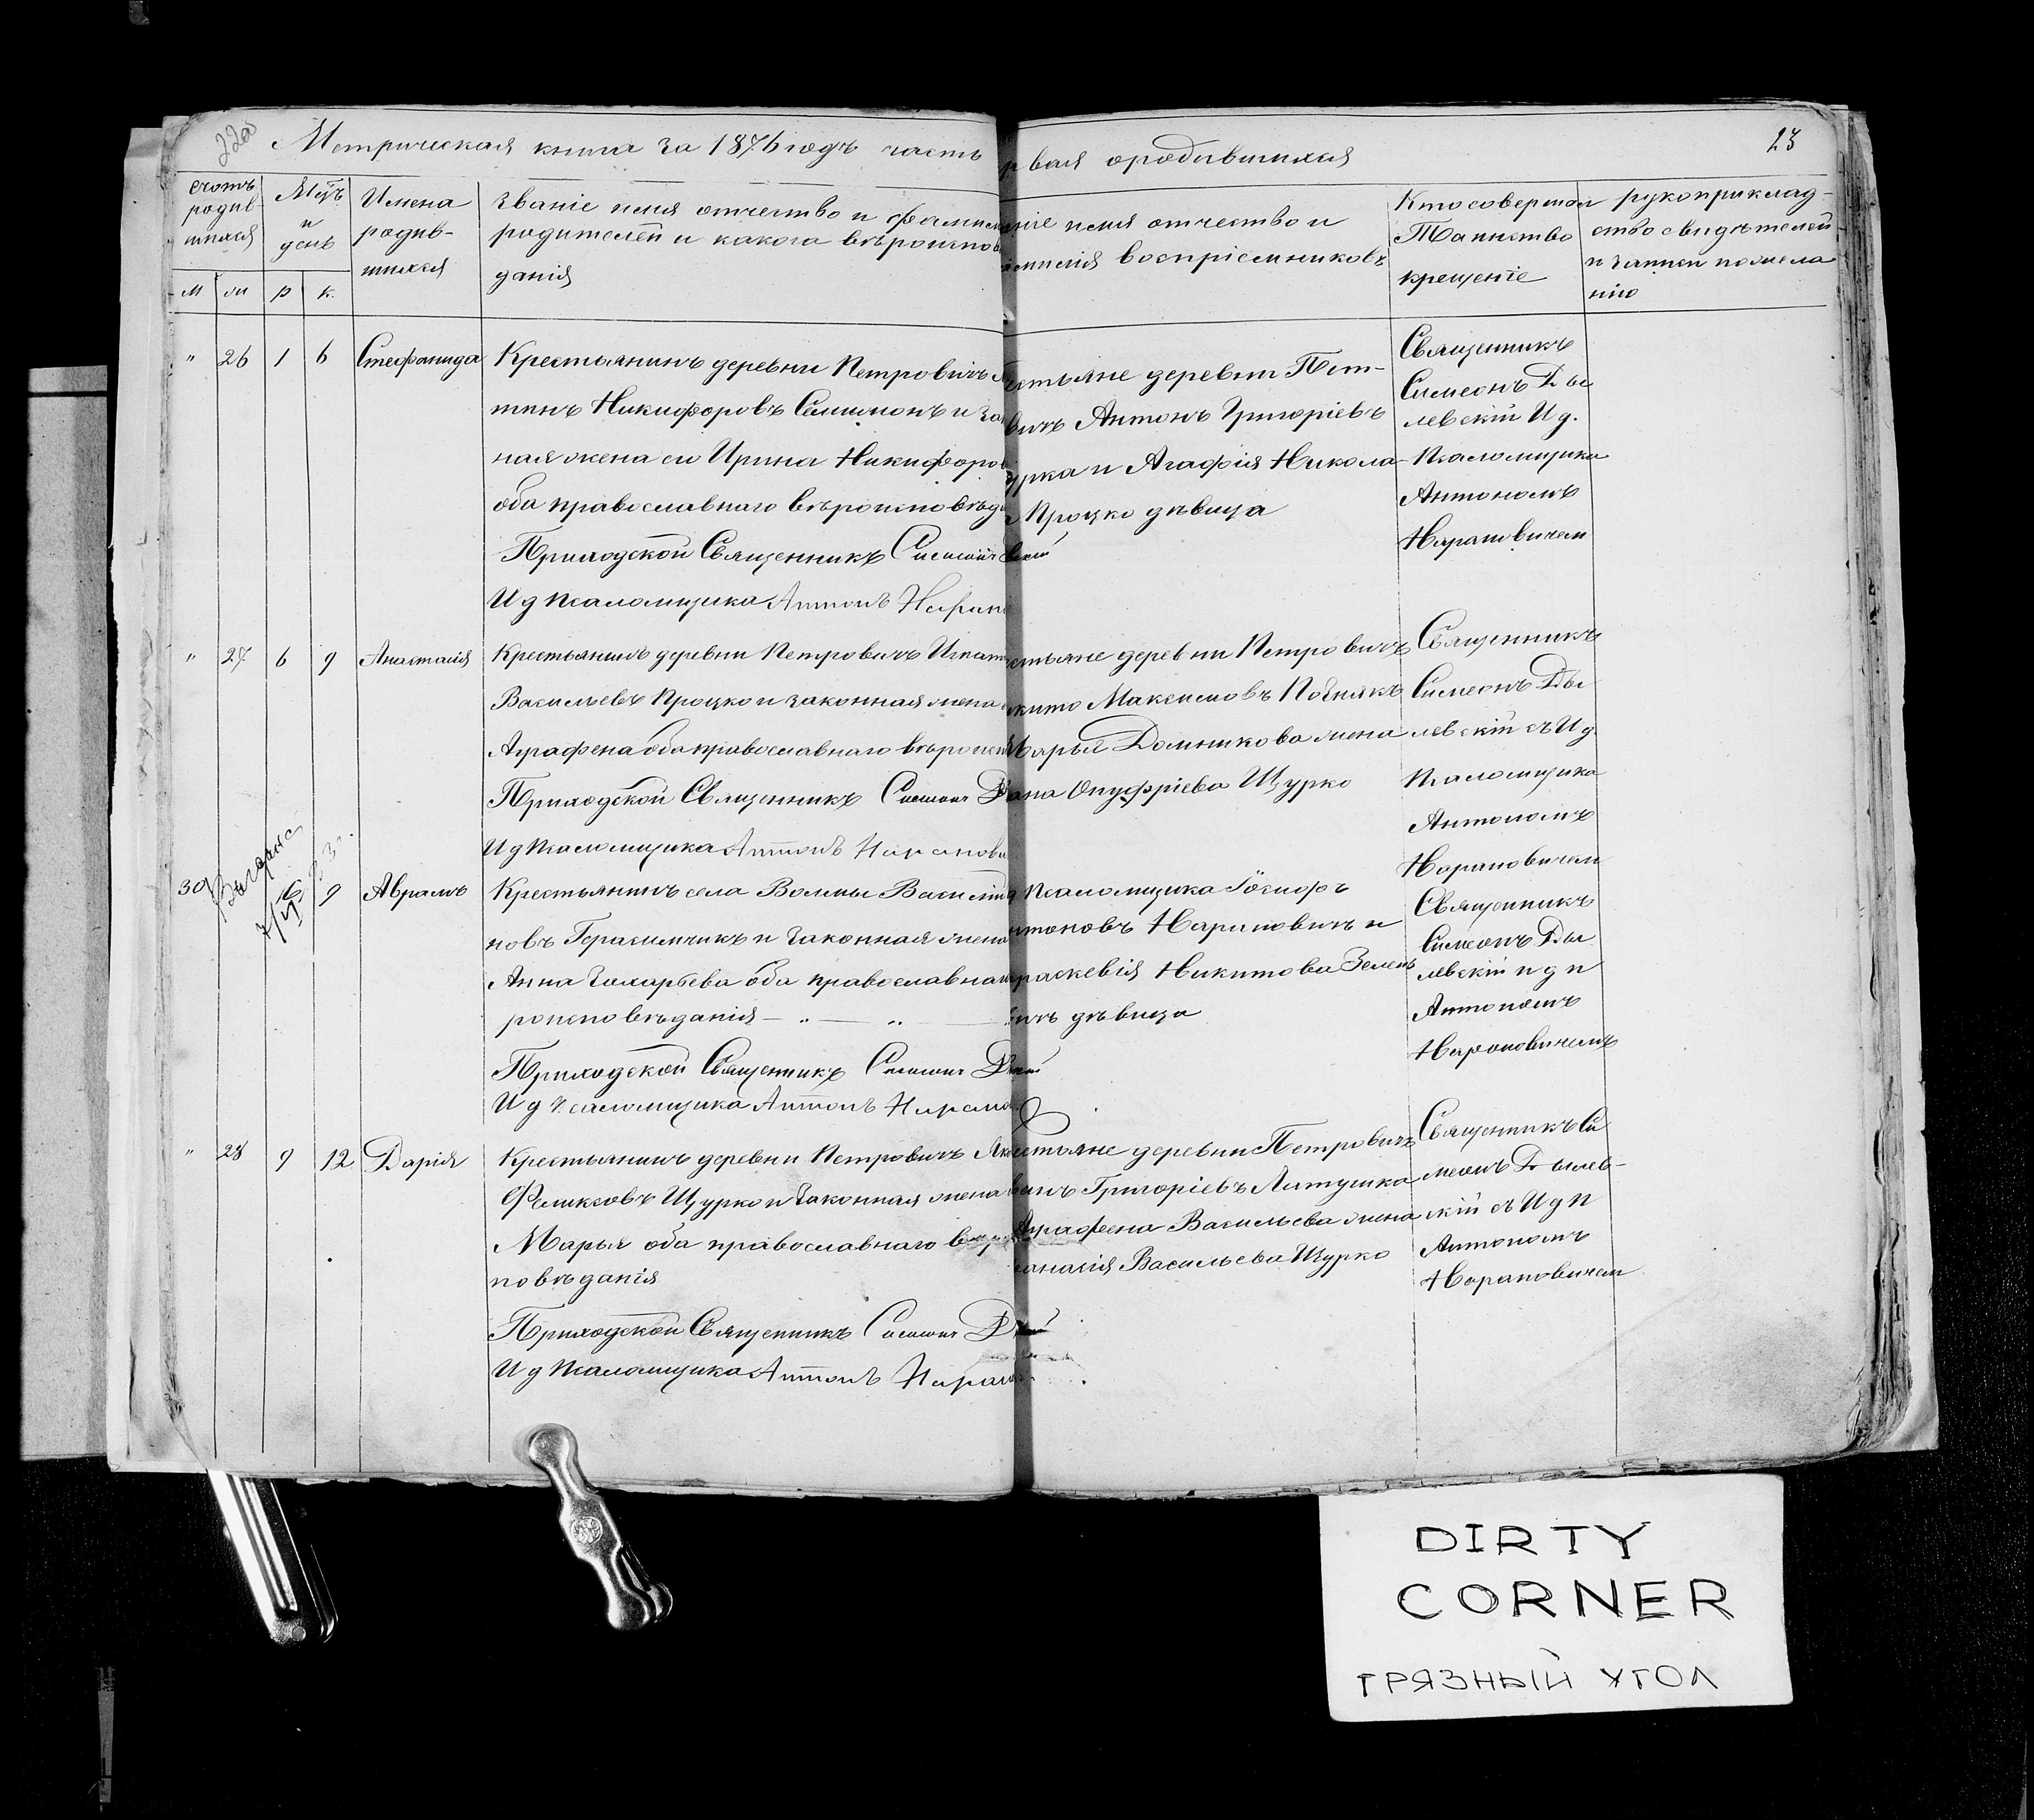 Метрическая книга за 1876 годъ часть
рвая о родившихся
23
счотъ родив- шихся
М ж
Мцъ и день
р к.
Имена родив- шихся
Званіе имя отчество и фамилі
родителей и какога вѣроиспов
данія
ніе имя отчество и
амилія воспріемниковъ
Кто совершал
Таинство
крещеніе
рукоприклад-
ство свидѣтелей
о записи по жела
нію
" 26 1 6 Стефанида
Крестьянинъ деревни Петровичъ
тинъ Никифоровъ Симмонъ и за
ная жена его Ирина Никифоров
оба православнаго вѣроисповѣд
Приходской Священникъ Симеон
И д псаломщика Антонъ Наран
стьяне деревни Пет-
вичъ Антонъ Григоріевъ
урка и Агафія Никола
Процко дѣвица
Священникъ
Симеонъ Ды
левскій И д.
Псаломщика
Антономъ
Нарановичем
" 27 6 9 Анастасія
Крестьянинъ деревни Петровичъ Игнат
Васильевъ Процко и законная жена
Аграфена оба православнаго вѣроиспо
Приходской Священникъ Симеон Д
И д Псаломщика Антонъ Наранови
стьяне деревни Петровичъ
кито Максимовъ Познякъ
Марья Домникова жена
ана Онуфріева Щурко
Священникъ
Симеонъ Ды
левскій съ И д
Псаломщика
Антономъ
Нарановичем
30 9 Аврамъ
Крестьянинъ села Волмы Василій
новъ Герасимчикъ и законная жена
Анна Захарьева оба православна
роисповѣданія — " — " —
Приходской Священникъ Симеон Д
И д Псаломщика Антонъ Нарано
Псаломщика Іосифъ
нтоновъ Нарановичъ и
раскевія Никитова Зелен
ичъ дѣвица
Священникъ
Симеонъ Ды
левскій и д п
Антономъ
Нарановичемъ
" 28 9 12 Дарія
Крестьянинъ деревни Петровичъ Як
Феликсовъ Щурко и законная жена
Марья оба православнаго вѣрои
повѣданія
Приходской Священникъ Симеон Д
И д Псаломщика Антонъ Наран
стьяне деревни Петровичъ
ванъ Григоріевъ Литушка
Аграфена Васильева жена
анасія Васильева Щурко
Священникъ Си
меонъ Дылев-
скій съ И д П
Антономъ
Нарановичем
DIRTY
CORNER
ГРЯЗНЫЙ УГОЛ